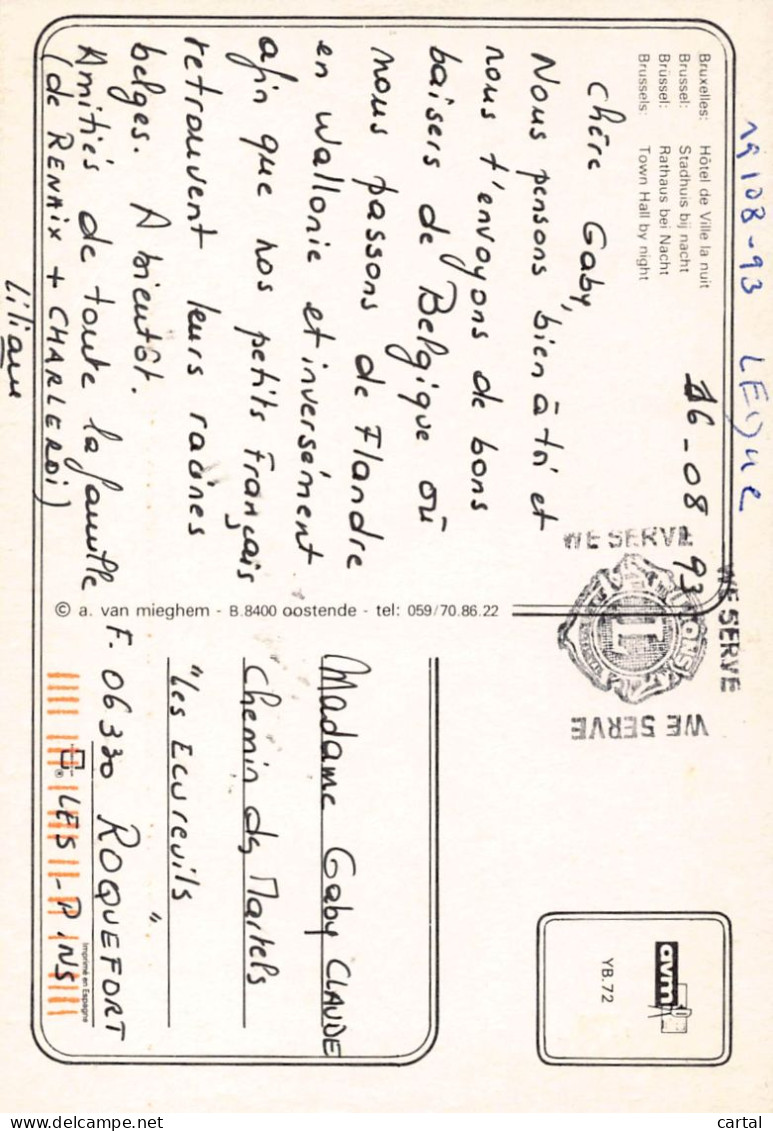 19/08-93
Bruxelles: Hôtel de Ville la nuit
Brussel: Stadhuis bij nacht
Brüssel: Rathaus bei Nacht
Brussels: Town Hall by night
16-08 93
Chère Gaby,
Nous pensons bien à toi et
nous t'envoyons de bons
baisers de Belgique où
nous passons de Flandre
en Wallonie et inversément
afin que nos petits Français
retrouvent leurs racines
belges. A bientôt.
Amitiés de toute la famille
(de RENAIX + CHARLEROI)
Liliane
WE SERVE
WE SERVE
WE SERVE
LIONS
L
© a. van mieghem - B.8400 oostende - tel: 059/70.86.22
Madame Gaby CLAUDE
Chemin des Martels
"Les Ecureuils"
F. 06330 ROQUEFORT
LES-PINS
avm
YB.72
Imprimé en Espagne
cartal